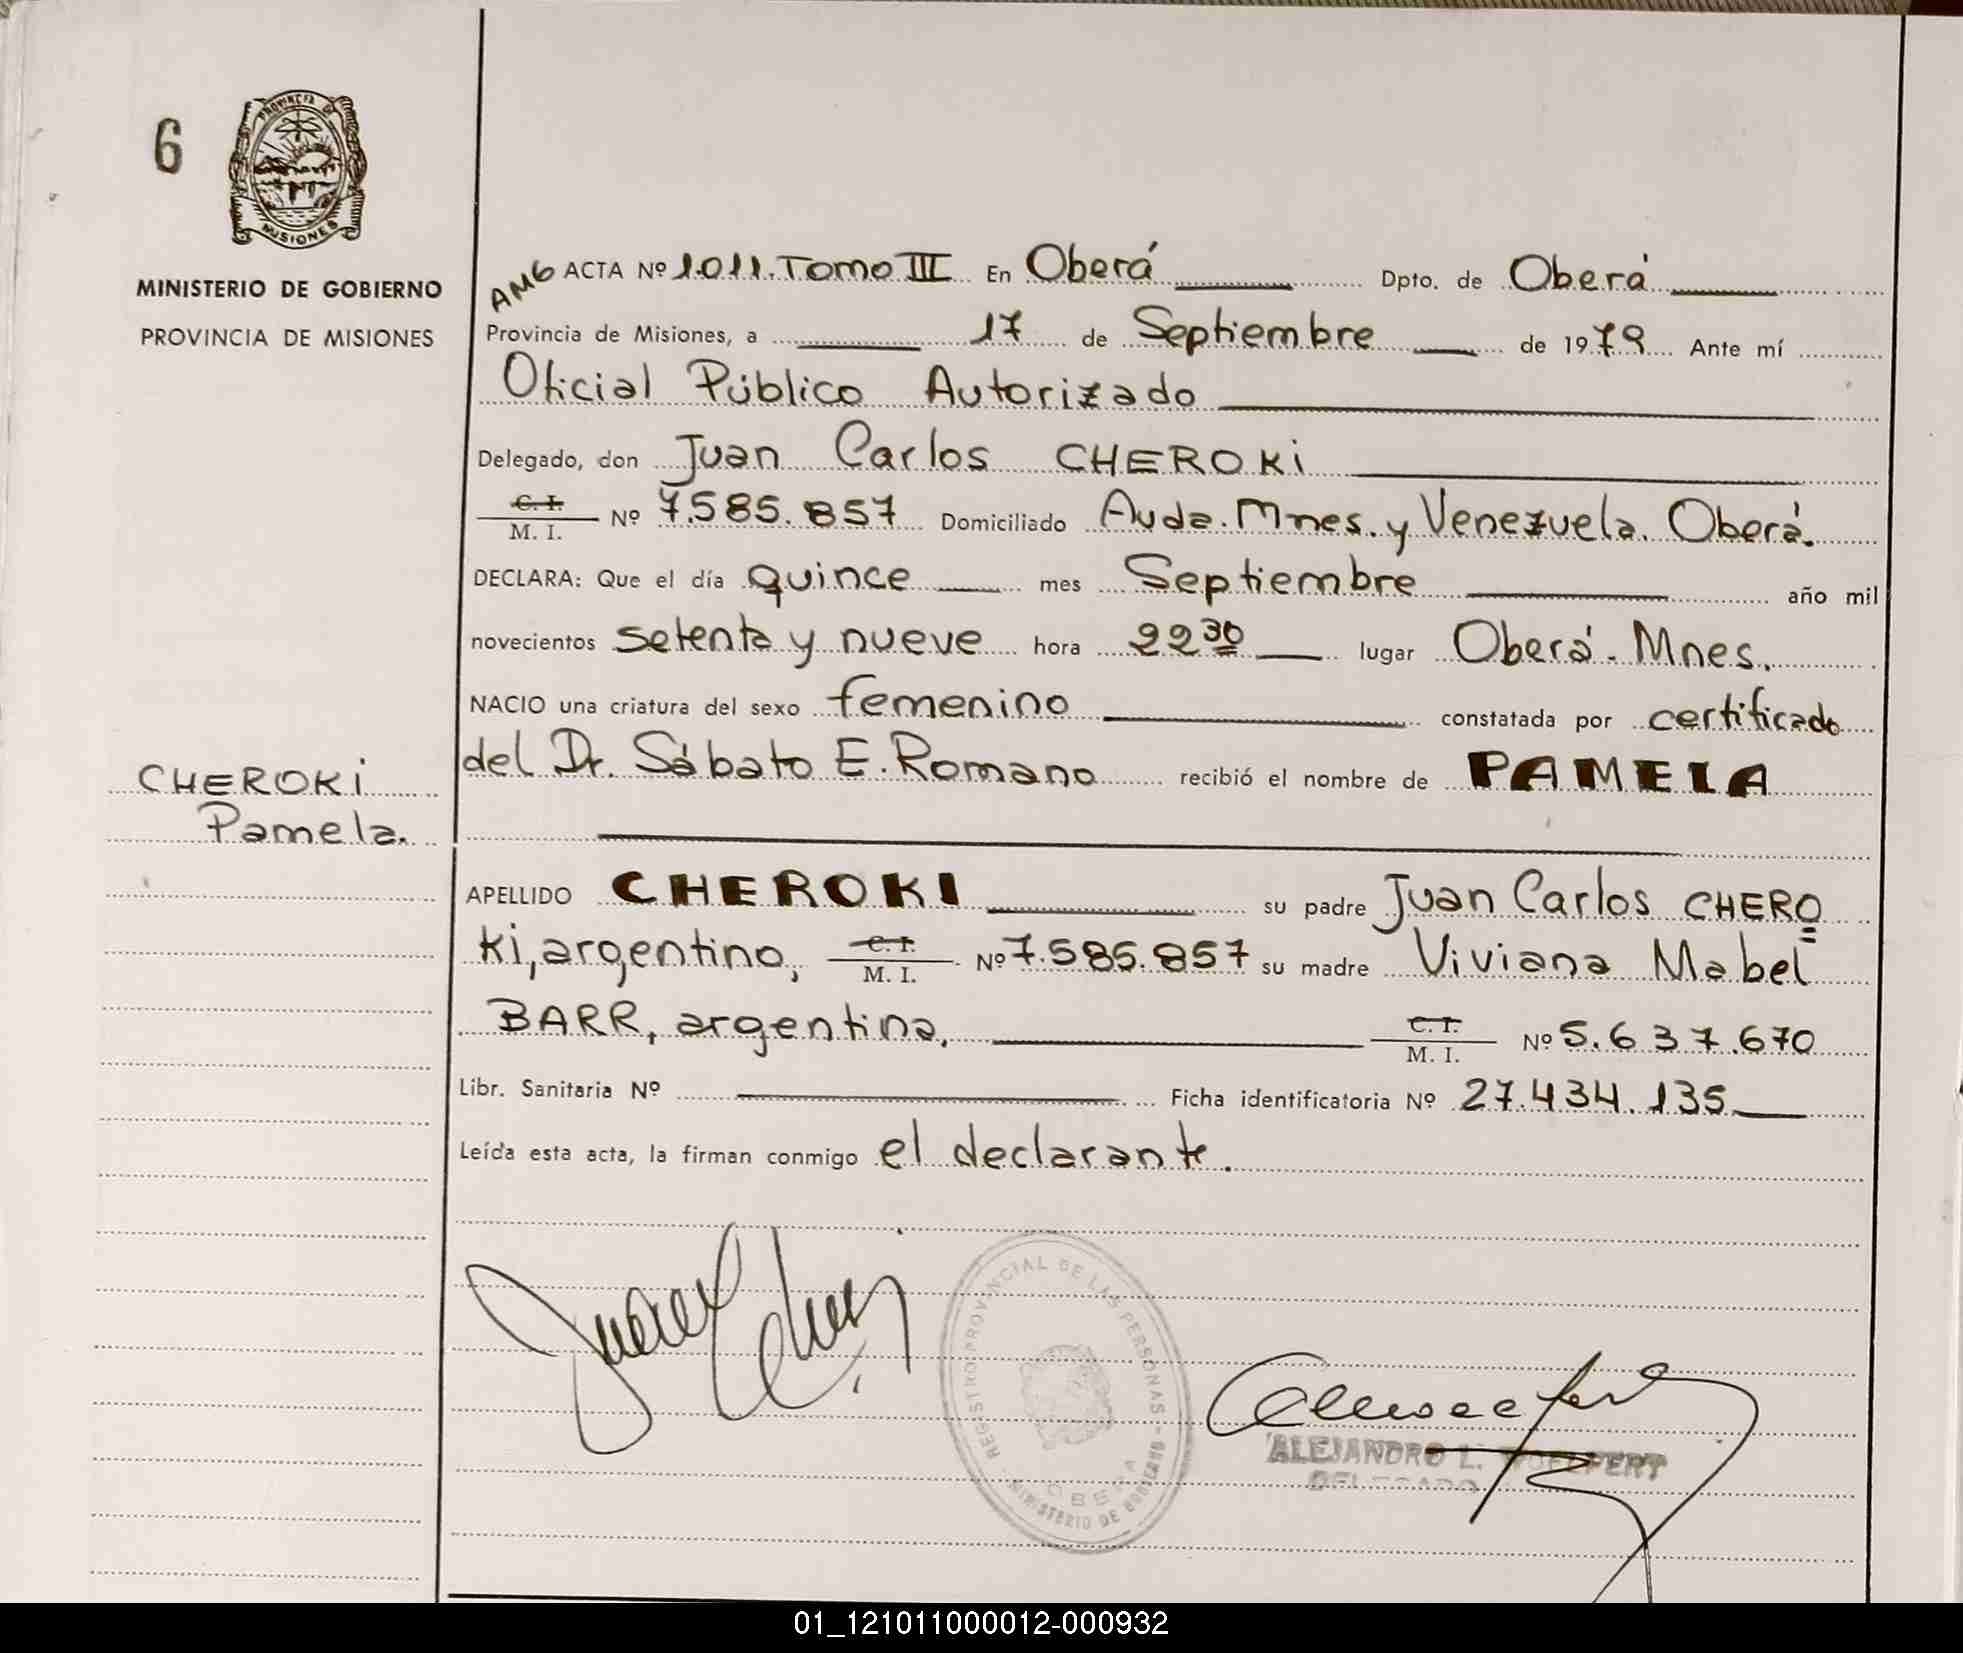 6
PROVINCIA DE
MISIONES
MINISTERIO DE GOBIERNO
PROVINCIA DE MISIONES
AMG ACTA Nº 1.011. Tomo III En Oberá Dpto. de Oberá
Provincia de Misiones, a 17 de Septiembre de 1979 Ante mí
Oficial Público Autorizado
Delegado, don Juan Carlos CHEROKi
C. I.
M. I. Nº 7.585.857 Domiciliado Avda. Mnes. y Venezuela. Oberá.
DECLARA: Que el día quince mes Septiembre año mil
novecientos setenta y nueve hora 22 30 lugar Oberá. Mnes.
NACIO una criatura del sexo femenino constatada por certificado
del Dr. Sábato E. Romano recibió el nombre de PAMELA
CHEROKi
Pamela.
APELLIDO CHEROKI su padre Juan Carlos CHERO
Ki, argentino, C. I.
M. I. Nº 7.585.857 su madre Viviana Mabel
BARR, argentina, C. I.
M. I. Nº 5.637.670
Libr. Sanitaria Nº Ficha identificatoria Nº 27.434.135
Leída esta acta, la firman conmigo el declarante.
REGISTRO PROVINCIAL DE LAS PERSONAS
MINISTERIO DE GOBIERNO
OBERA
ALEJANDRO L.
DELEGADO
01_121011000012-000932